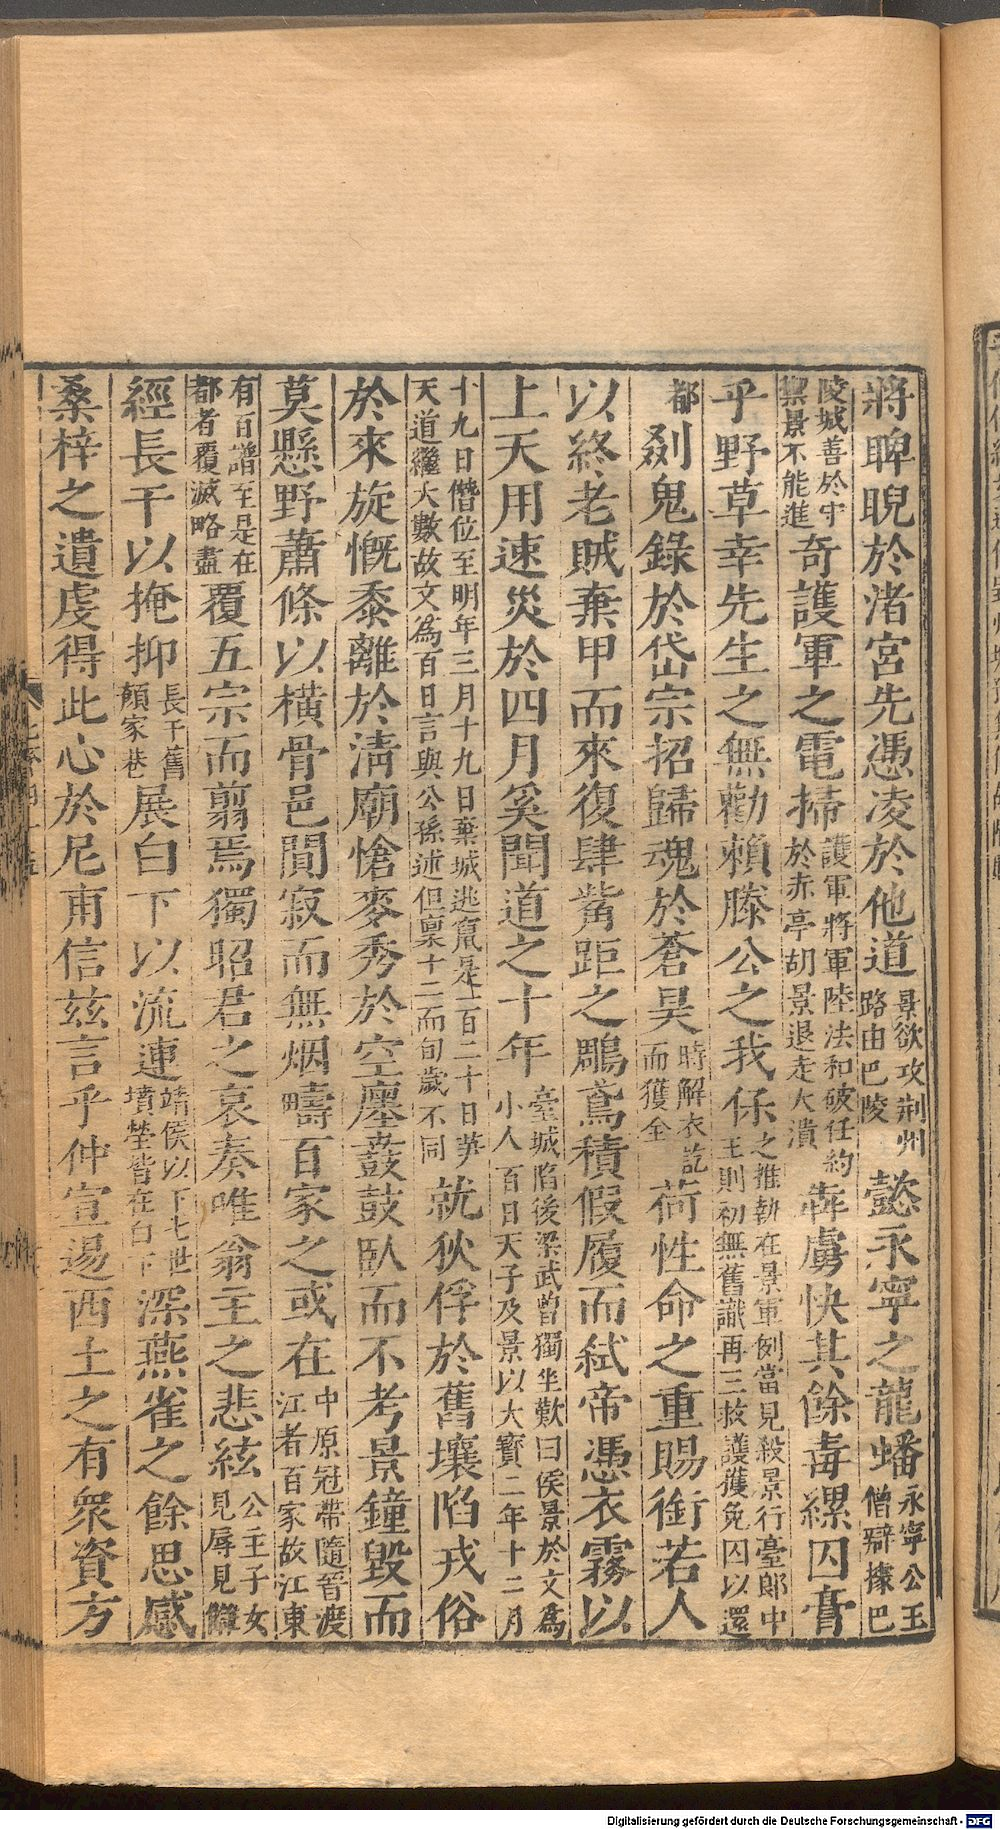 將睥睨於渚宮先憑凌於他道景欲攻荆州路由巴陵懿永寧之龍蟠永寧公王僧辯據巴
陵城善於守禦景不能進奇護軍之電掃護軍將軍陸法和破任約於赤亭胡景退走大潰犇虜快其餘毒縲囚膏
乎野草幸先生之無勸賴滕公之我保之推執在景軍例當見殺景行臺郎中王則初無舊識再三救護獲免囚以還
都剟鬼錄於岱宗招歸魂於蒼昊時解衣訖而獲全荷性命之重賜銜若人
以終老賊棄甲而來復肆觜距之鵰鳶積假履而弑帝憑衣霧以
上天用速災於四月奚聞道之十年臺城陷後梁武曾獨坐歎曰侯景於文爲小人百日天子及景以大寳二年十二月
十九日僭位至明年三月十九日棄城逃竄是一百二十日芛天道繼大數故文爲百日言與公孫述但稟十二而旬歲不同就狄俘於舊壤陷戎俗
於來旋慨黍離於清廟愴麥秀於空㕓鼖鼓臥而不考景鐘毁而
莫懸野蕭條以橫骨邑闃寂而無烟疇百家之或在中原冠帶隨晉渡江者百家故江東
有百譜至是在都者覆滅略盡覆五宗而翦焉獨昭君之哀奏唯翁主之悲絃公主子女見辱見讎
經長干以掩抑長干舊顔家巷展白下以流連靖侯以下七世墳塋皆在白下深燕雀之餘思感
桑梓之遺虔得此心於尼甫信兹言乎仲宣逷西土之有衆資方
Digitalisierung gefördert durch die Deutsche Forschungsgemeinschaft - DFG